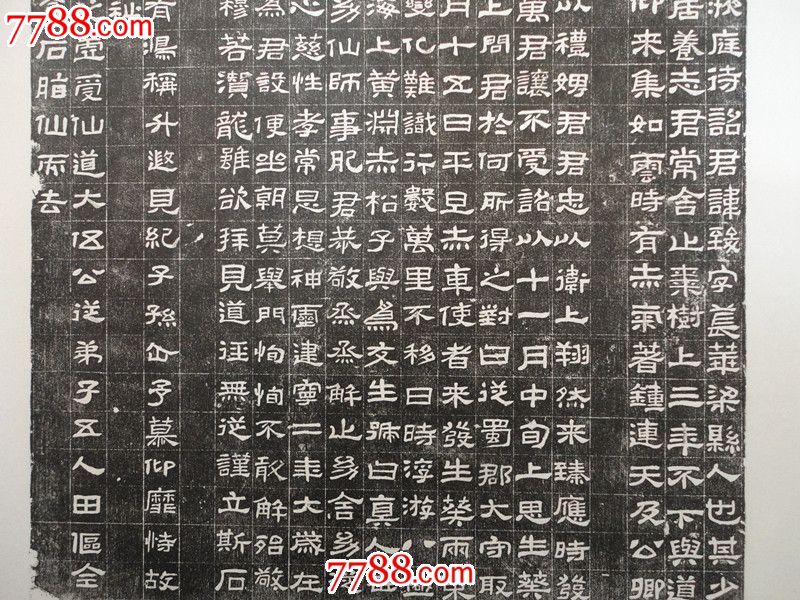 7788.com
掖庭待詔君諱致字萇華梁縣人也其少
居養志君常舍止棗樹上三年不下與道
仰來集如雲時有赤氣著鐘連天及公卿
以禮娉君君忠以衛上翔然來臻應時發
萬君讓不受詔以十一月中旬上思生葵
上問君於何所得之對曰從蜀郡大守取
月十五日平旦赤車使者來發生葵兩束
變化難識行數萬里不移日時浮游八極
海上黃淵赤松子與為友生號曰真人世
幼仙師事肥君恭敬烝烝解止幼舍幼從
心慈性孝常思想神靈建寧二年大歲在
為君設便坐朝莫舉門恂恂不敢解殆敬
穆若潛龍雖欲拜見道徑無從謹立斯石
有鴻稱升遐見紀子孫企予慕仰靡恃故
虛受仙道大伍公從弟子五人田傴全
石脂仙而去
7788.com
7788.com